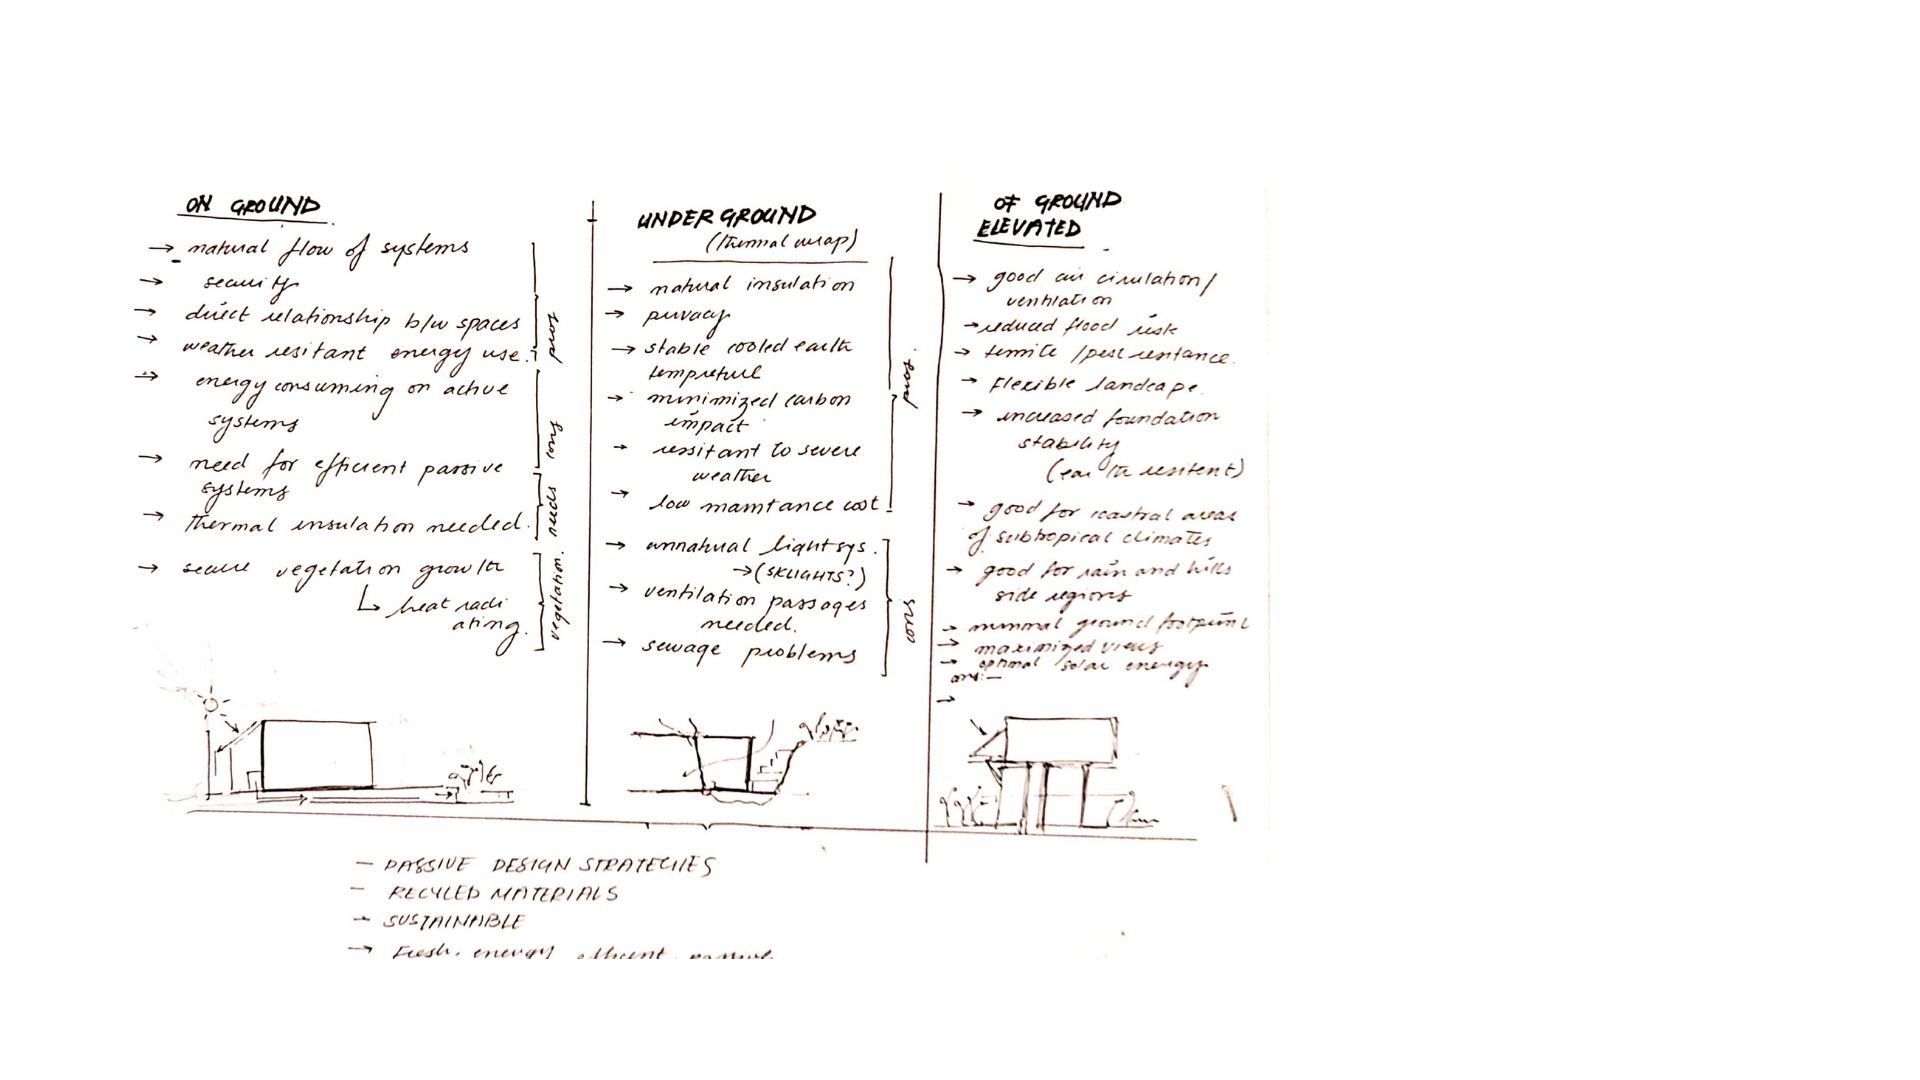 ON GROUND
→ natural flow of systems
→ security
→ direct relationship b/w spaces
→ weather resitant energy use.
→ energy consuming on active
systems
→ need for efficient passive
systems
→ thermal insulation needed.
→ secure vegetation growth
↳ heat radi
ating.
pros
cons
needs
vegetation.
UNDERGROUND
(thermal wrap)
→ natural insulation
→ privacy
→ stable cooled earth
→ minimized carbon
impact
→ ressitant to severe
weather
→ low maintance cost
→ unnatural light sys.
→ (SKLIGHTS?)
→ ventilation passages
needed.
→ sewage problems
pros.
cons
OF GROUND
ELEVATED
→ good air cirulation/
ventilation
→ reduced flood risk
→ termite /pest
→ Flexible landcape.
→ increased foundation
stability
→ good for coastral areas
of subtropical climates
→ good for rain and hills
side regions
→ minmal ground footprint
→ maximized views
→ optimal solar energy
→
— PASSIVE DESIGN STRATEGIES
— RECYLED MATERIALS
→ SUSTAINABLE
→ Fresh, energy efficent, passive